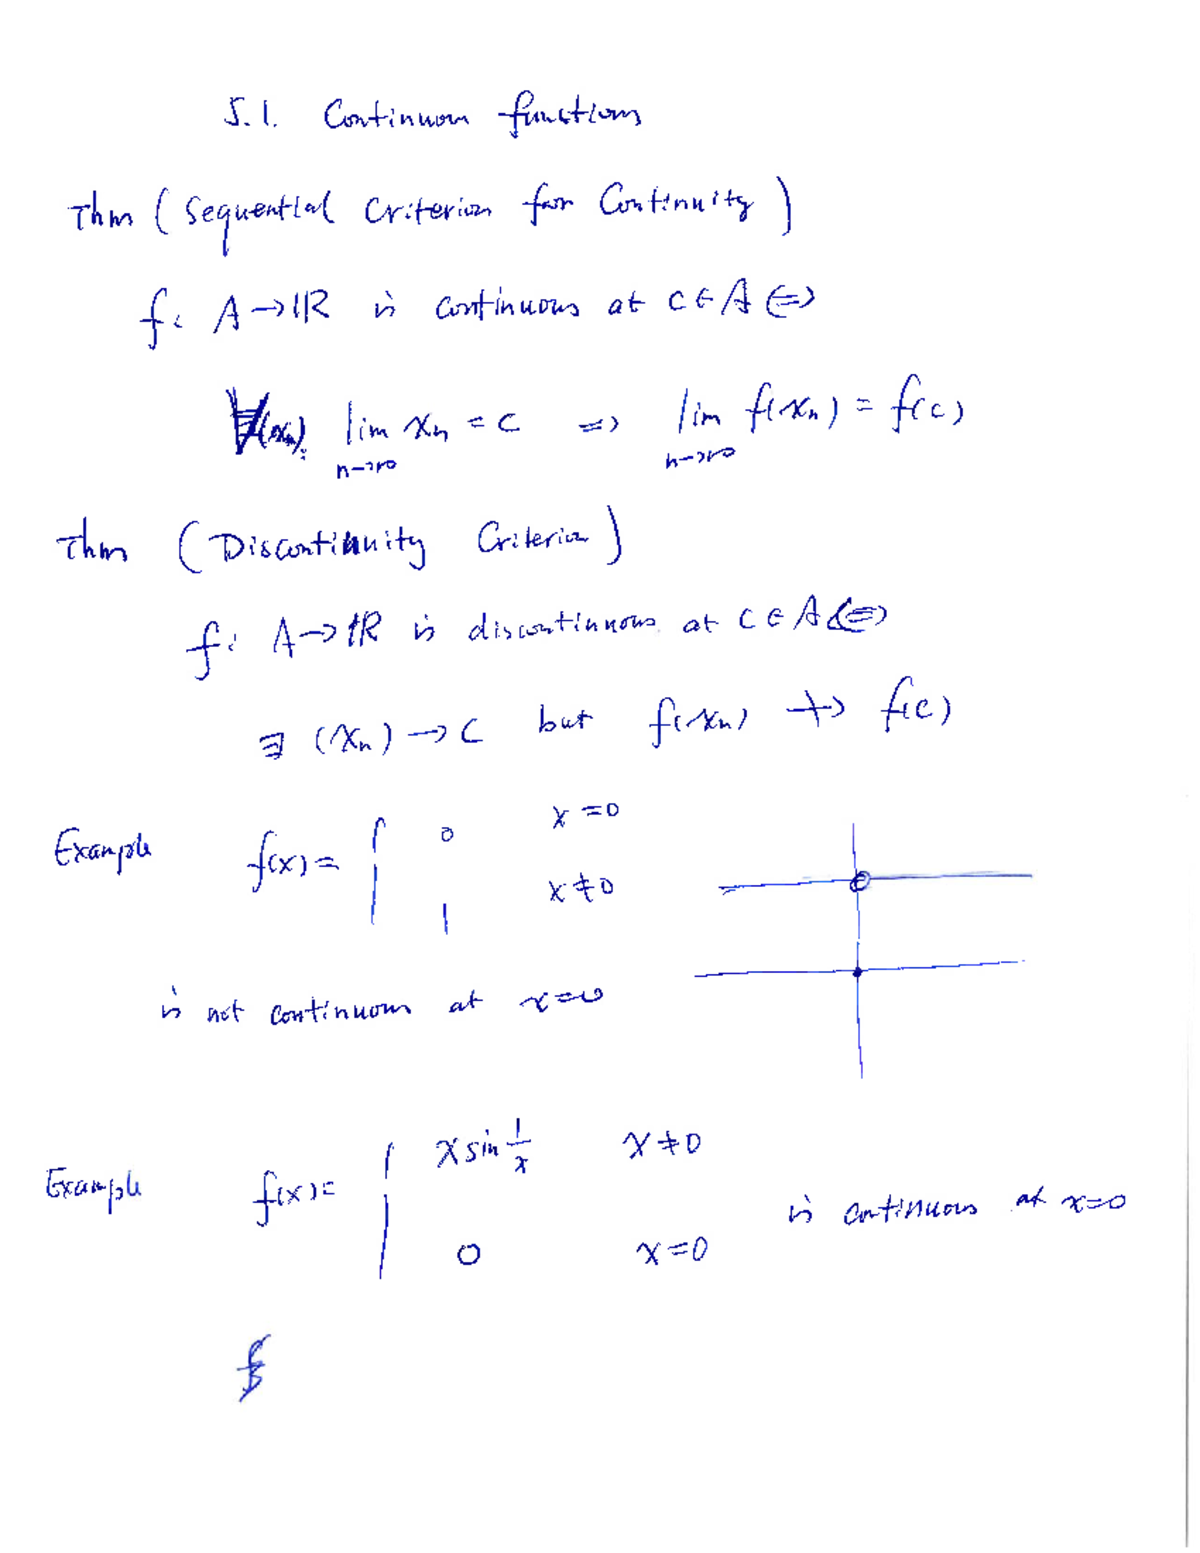 5.1. Continuous functions
Thm (Sequential Criterion for Continuity)
f: A → ℝ is continuous at c ∈ A ⇔
∀(xₙ): lim xₙ = c ⇒ lim f(xₙ) = f(c)
n→∞ n→∞
Thm (Discontinuity Criterion)
f: A → ℝ is discontinuous at c ∈ A ⇔
∃ (xₙ) → c but f(xₙ) ↛ f(c)
Example f(x) = { 0 x = 0
1 x ≠ 0
is not continuous at x = 0
Example f(x) = { x sin 1/x x ≠ 0
0 x = 0
is continuous at x = 0